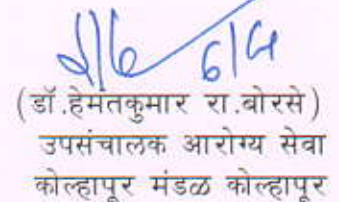 (डॉ.हेमंतकुमार रा.बोरसे)
उपसंचालक आरोग्य सेवा
कोल्हापूर मंडळ कोल्हापूर